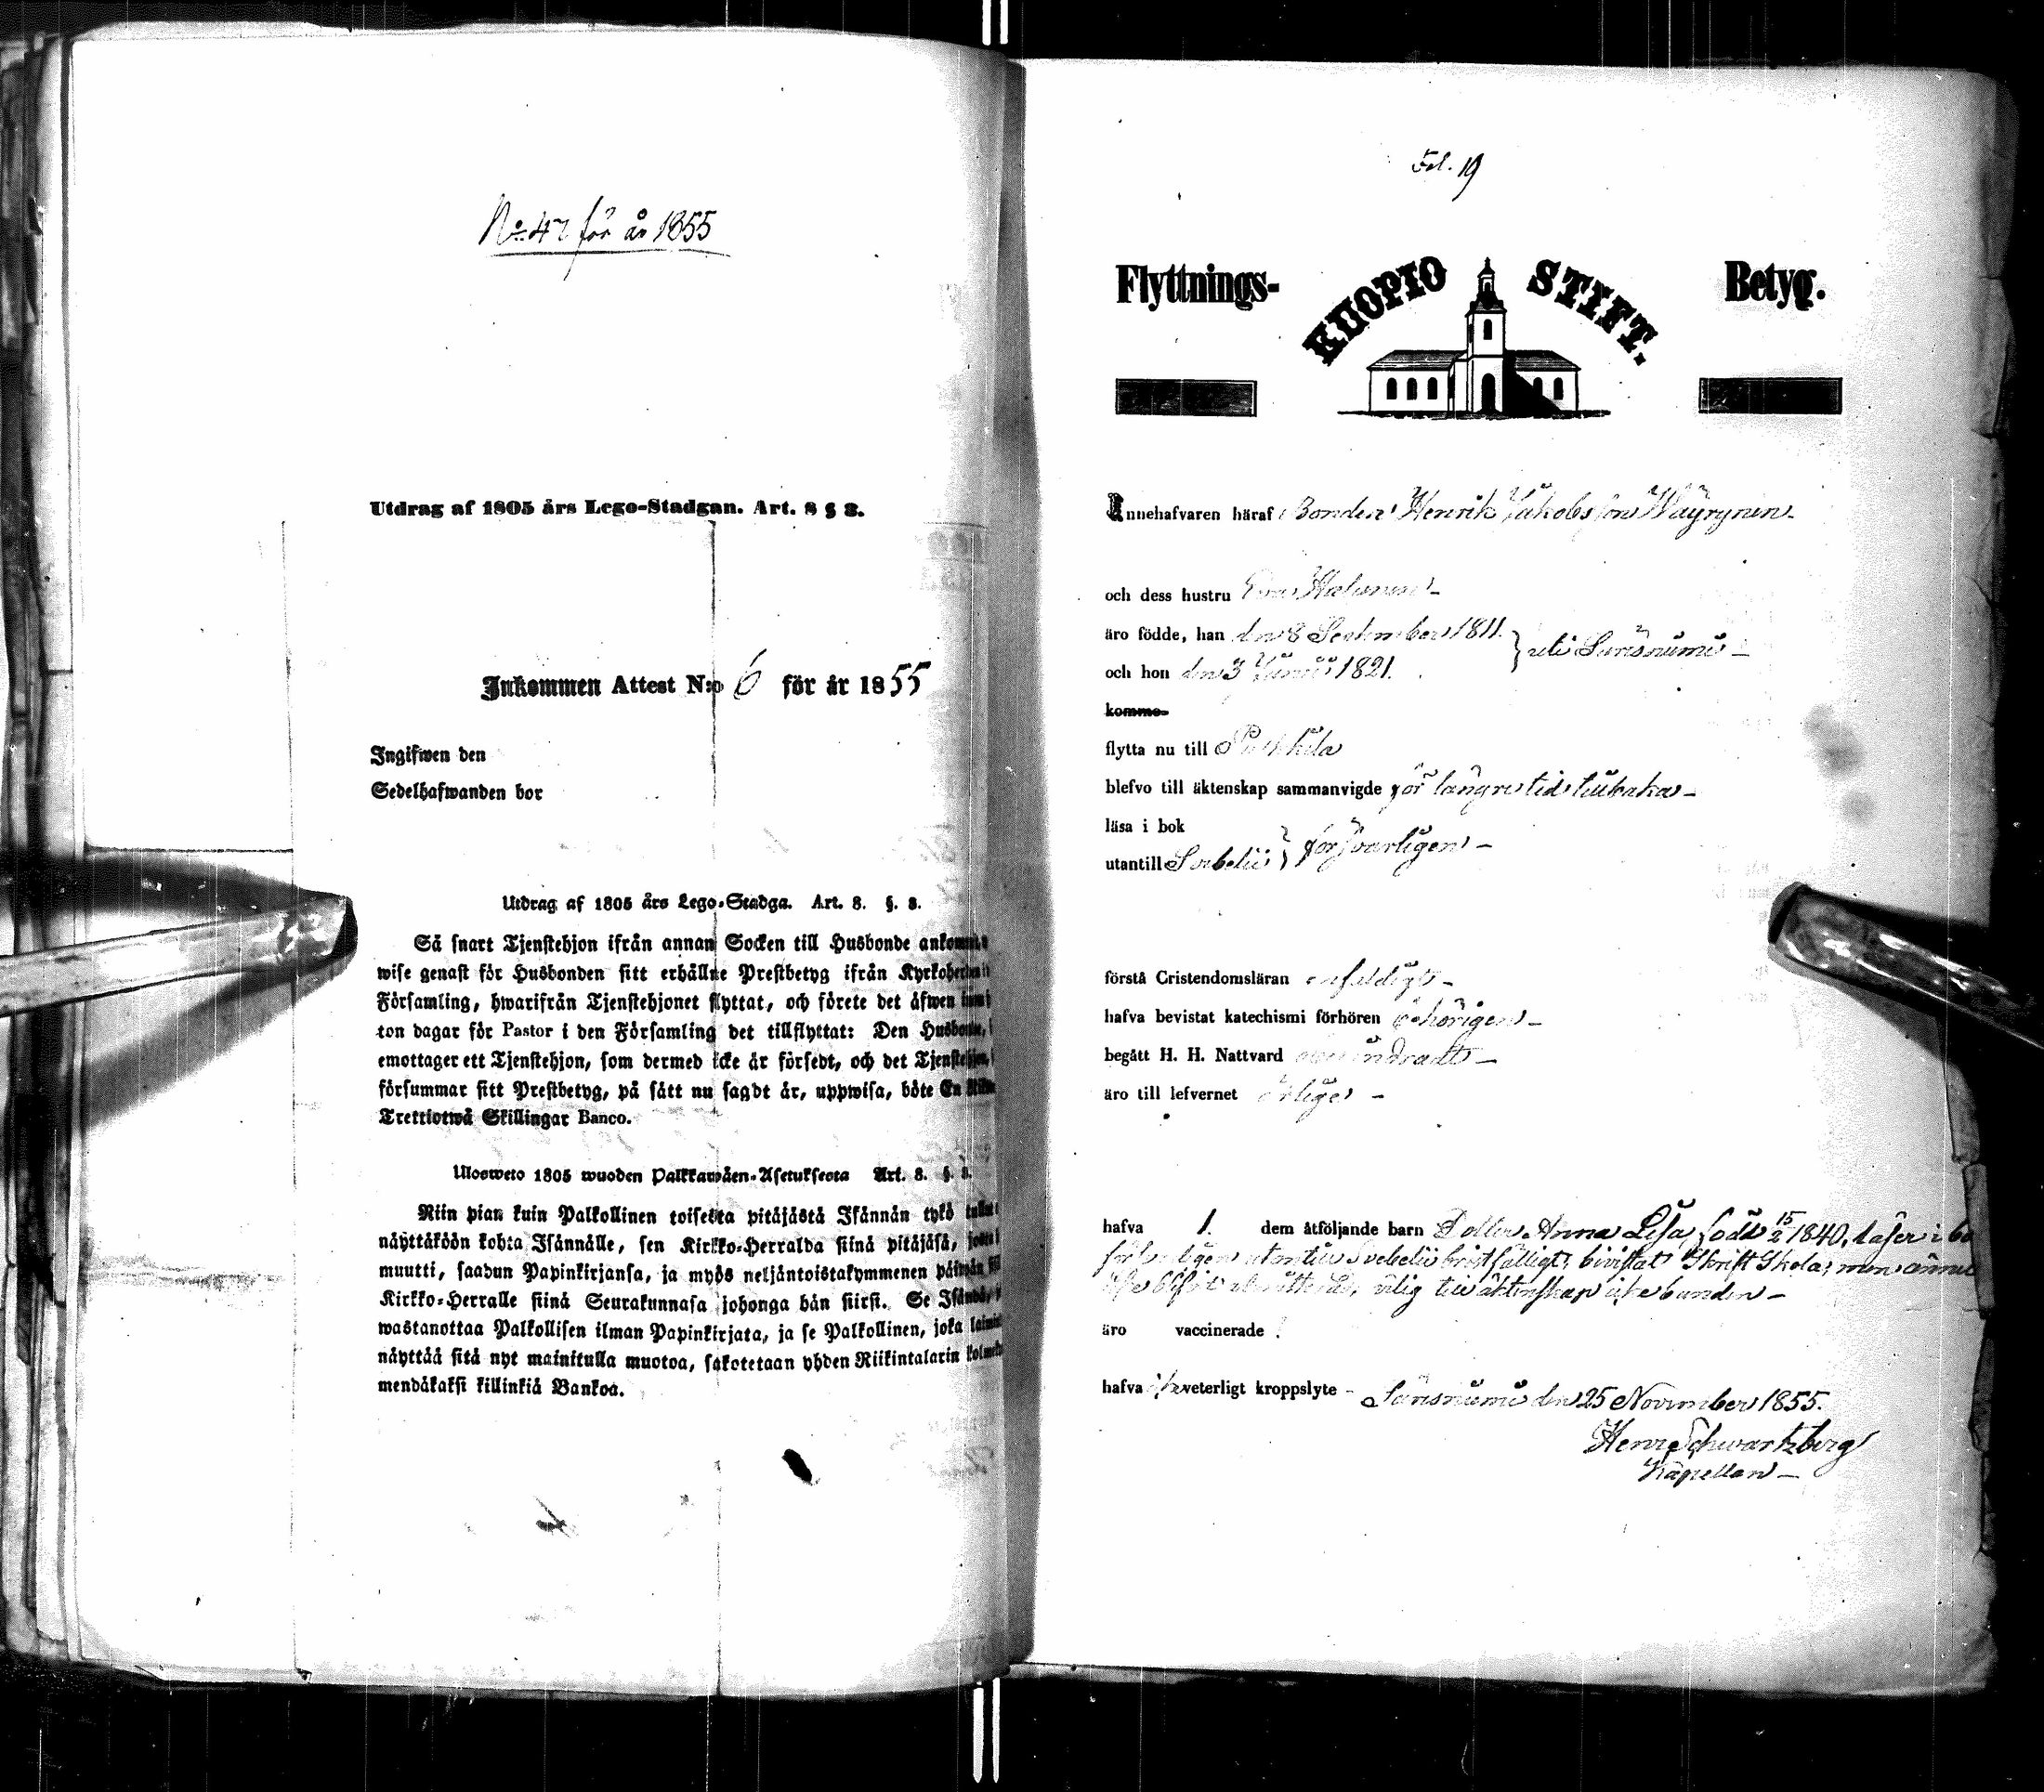 No 47 för år 1855
Utdrag af 1805 års Lego-Stadgan. Art. 8 § 3.
Inkommen Attest N:o 6 för år 1855
Ingifwen den
Sedelhafwanden bor
Utdrag af 1805 års Lego-Stadga. Art. 8. §. 3.
Så snart Tjenstehjon ifrån annan Socken till Husbonde
wise genast för Husbonden sitt erhållne Prestbetyg ifrån
Församling, hwarifrån Tjenstehjonet flyttat, och förete det äfwen
ton dagar för Pastor i den Församling det tillflyttat: Den
emottager ett Tjenstehjon, som dermed icke är försedt, och det
försummar sitt Prestbetyg, på sätt nu sagdt är, uppwisa, böte En
Trettiotwå Skillingar Banco.
Ulosweto 1805 wuoden Palkkawäen-Asetuksesta Art. 8. §. 3.
Niin pian kuin Palkollinen toisesta pitäjästä Isännän tykö
näyttäköön kohta Isännälle, sen Kirkko-Herralda siinä pitäjäsä,
muutti, saadun Papinkirjansa, ja myös neljäntoistakymmenen
Kirkko-Herralle siinä Seurakunnasa johonga hän siirsi. Se
wastanottaa Palkollisen ilman Papinkirjata, ja se Palkollinen, joka
näyttää sitä nyt mainitulla muotoa, sakotetaan yhden Riikintalarin
mendäkaksi killinkiä Bankoa.
Fol. 19
Flyttnings- KUOPIO STIFT. Betyg.
Innehafvaren häraf Bonden Henrik Jakobsson Wäyrynen
och dess hustru Eva
äro födde, han den 8 September 1811. } uti Surisnumi
och hon den 3 Junii 1821.
komme
flytta nu till
blefvo till äktenskap sammanvigde för längre tid tillbaka
läsa i bok
utantill Svebelii } försvarligen
förstå Cristendomsläran enfaldigt
hafva bevistat katechismi förhören behörigen
begått H. H. Nattvard
äro till lefvernet ärlige
hafva 1. dem åtföljande barn Dotter Anna Lisa född 15/2 1840, läser i
försvarligen utantill Svebelii bristfälligt, bivistat Skrift Skola, men ännu
icke blifvit admitterad, ledig till äktenskap icke bunden
äro vaccinerade
hafva icke veterligt kroppslyte Surisnumi den 25 November 1855.
Henr Schwartzberg
Kapellan